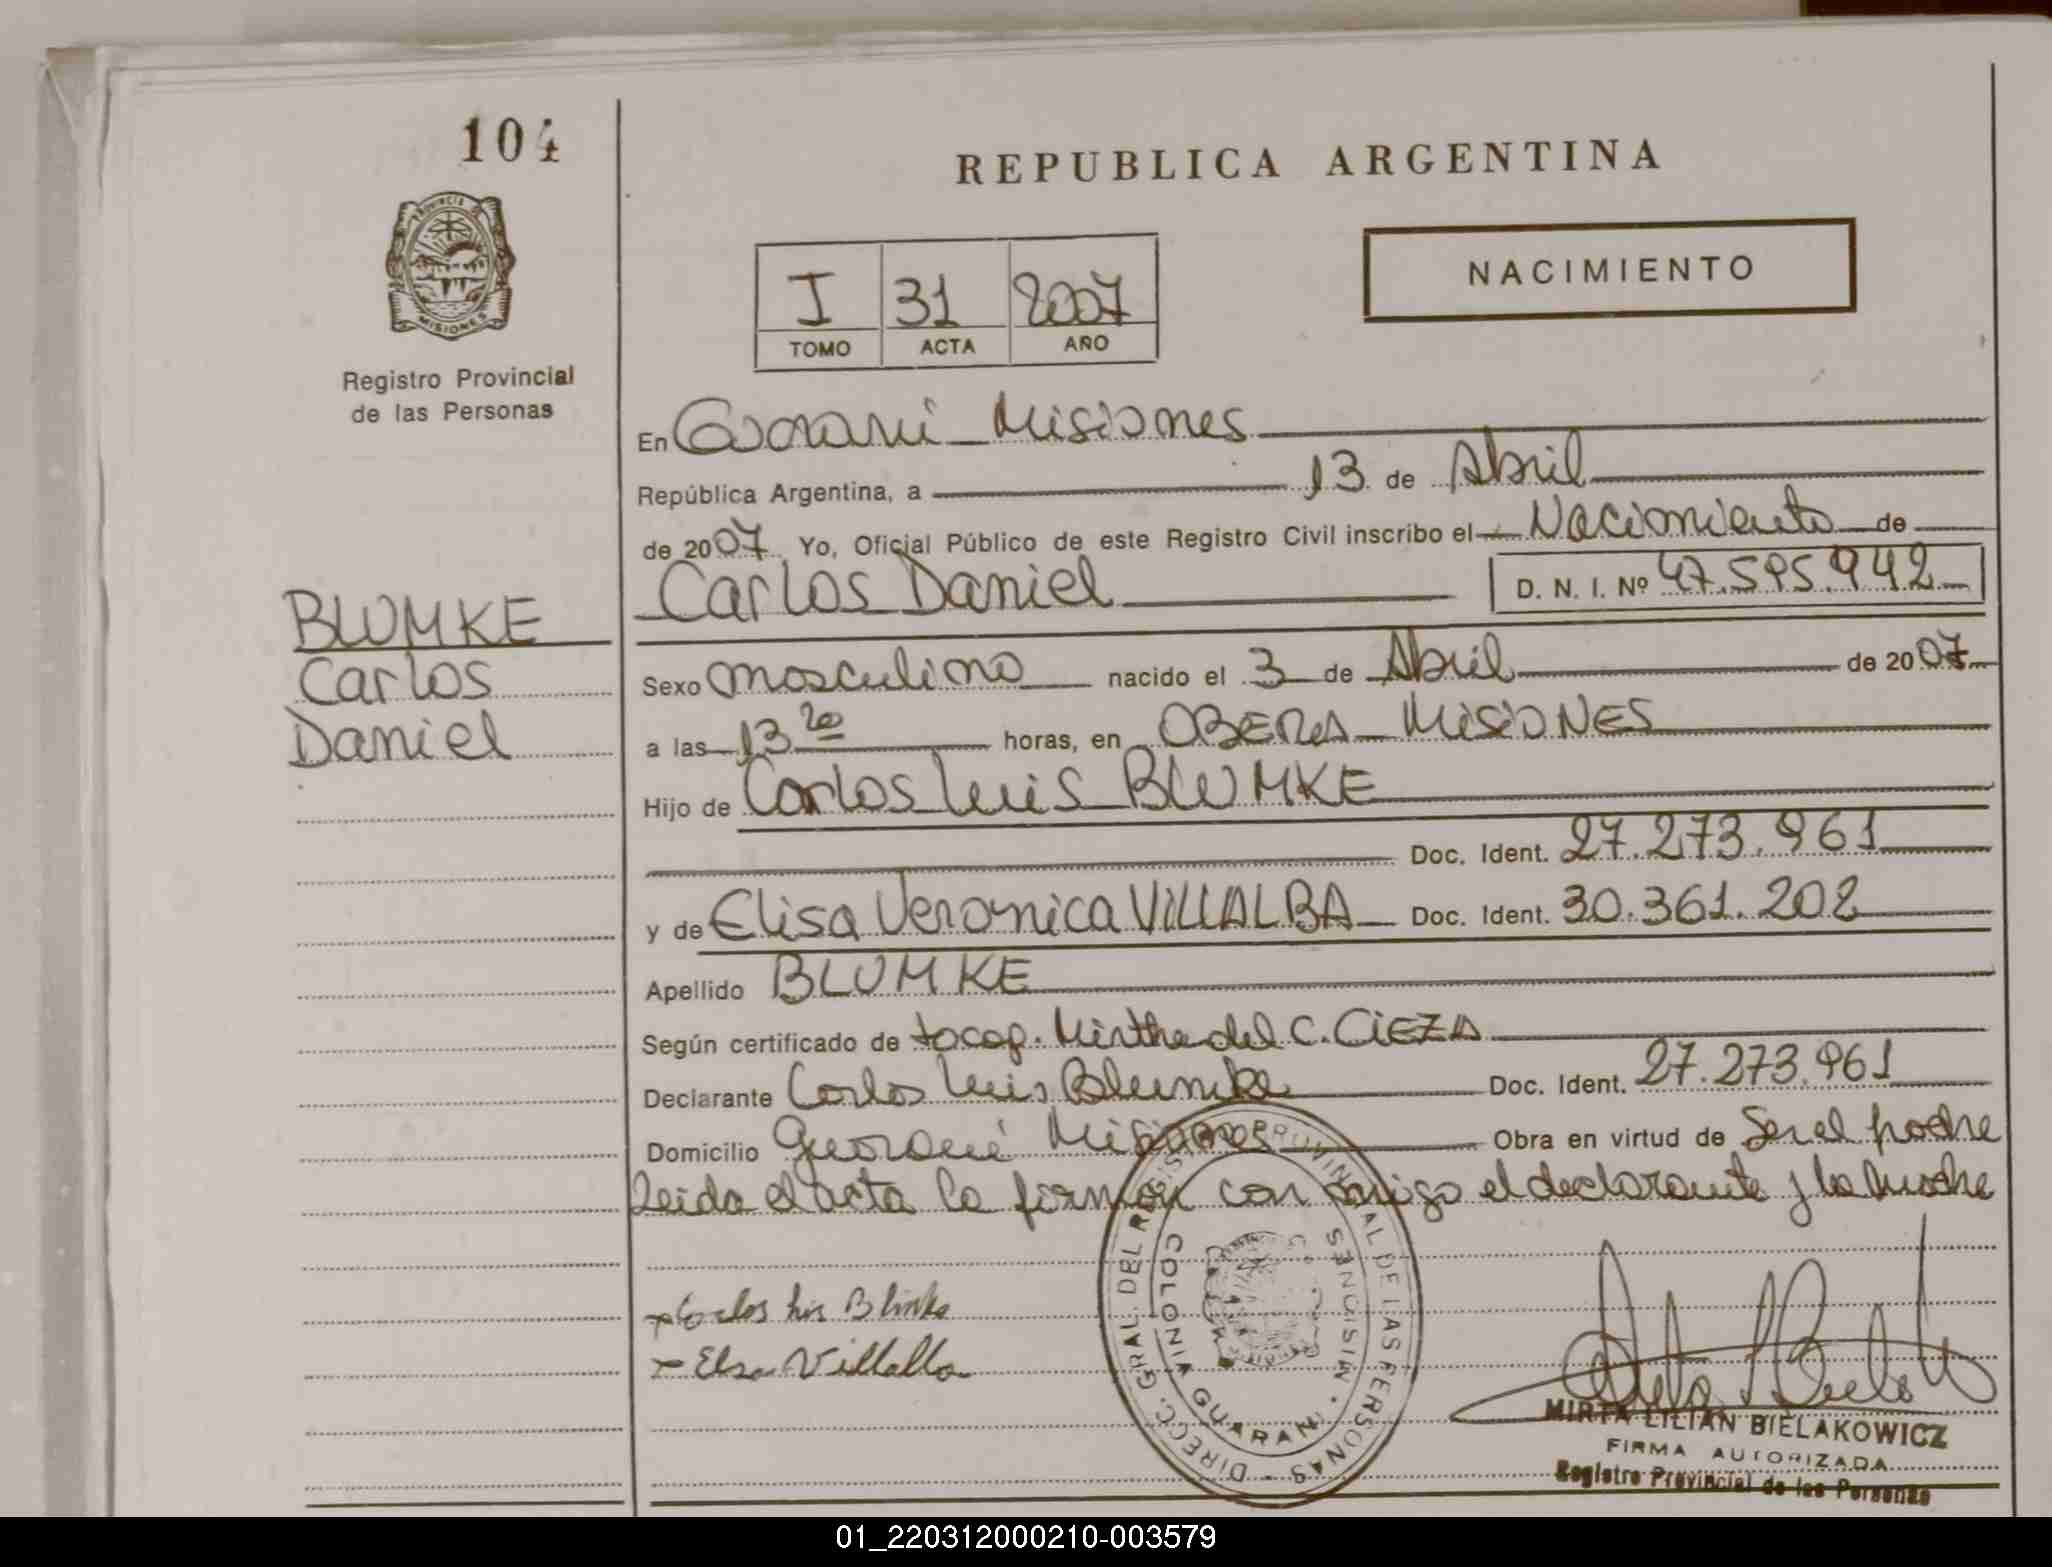 104
REPUBLICA ARGENTINA
PROVINCIA DE MISIONES
Registro Provincial
de las Personas
NACIMIENTO
I 31 2007
TOMO ACTA AÑO
En Guarani Misiones
República Argentina, a 13 de Abril
de 2007 Yo, Oficial Público de este Registro Civil inscribo el Nacimiento de
Carlos Daniel D. N. I. Nº 47.595.942
BLUMKE
Carlos
Daniel
Sexo masculino nacido el 3 de Abril de 2007
a las 13 20 horas, en OBERA MISIONES
Hijo de Carlos Luis BLUMKE
Doc. Ident. 27.273.961
y de Elisa Veronica VILLALBA Doc. Ident. 30.361.202
Apellido BLUMKE
Según certificado de tocog. Mirtha del C. CIEZA
Declarante Carlos Luis Blumke Doc. Ident. 27.273.961
Domicilio Guaraní Misiones Obra en virtud de Ser el padre
Leida el acta la firman con migo el declarante y la madre
Carlos Luis Blumke
Elsa Villalba
DIRECC. GRAL. DEL REGISTRO PROVINCIAL DE LAS PERSONAS
COLONIA GUARANI - MISIONES
MIRTA LILIAN BIELAKOWICZ
FIRMA AUTORIZADA
Registro Provincial de las Personas
01_220312000210-003579